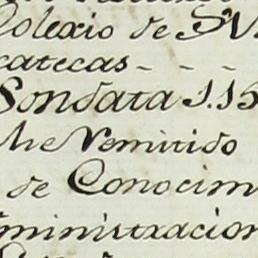 Colexio de Sn
catecas - - -
Sondata 1.15
he Remitido
de Conocim
ministracion